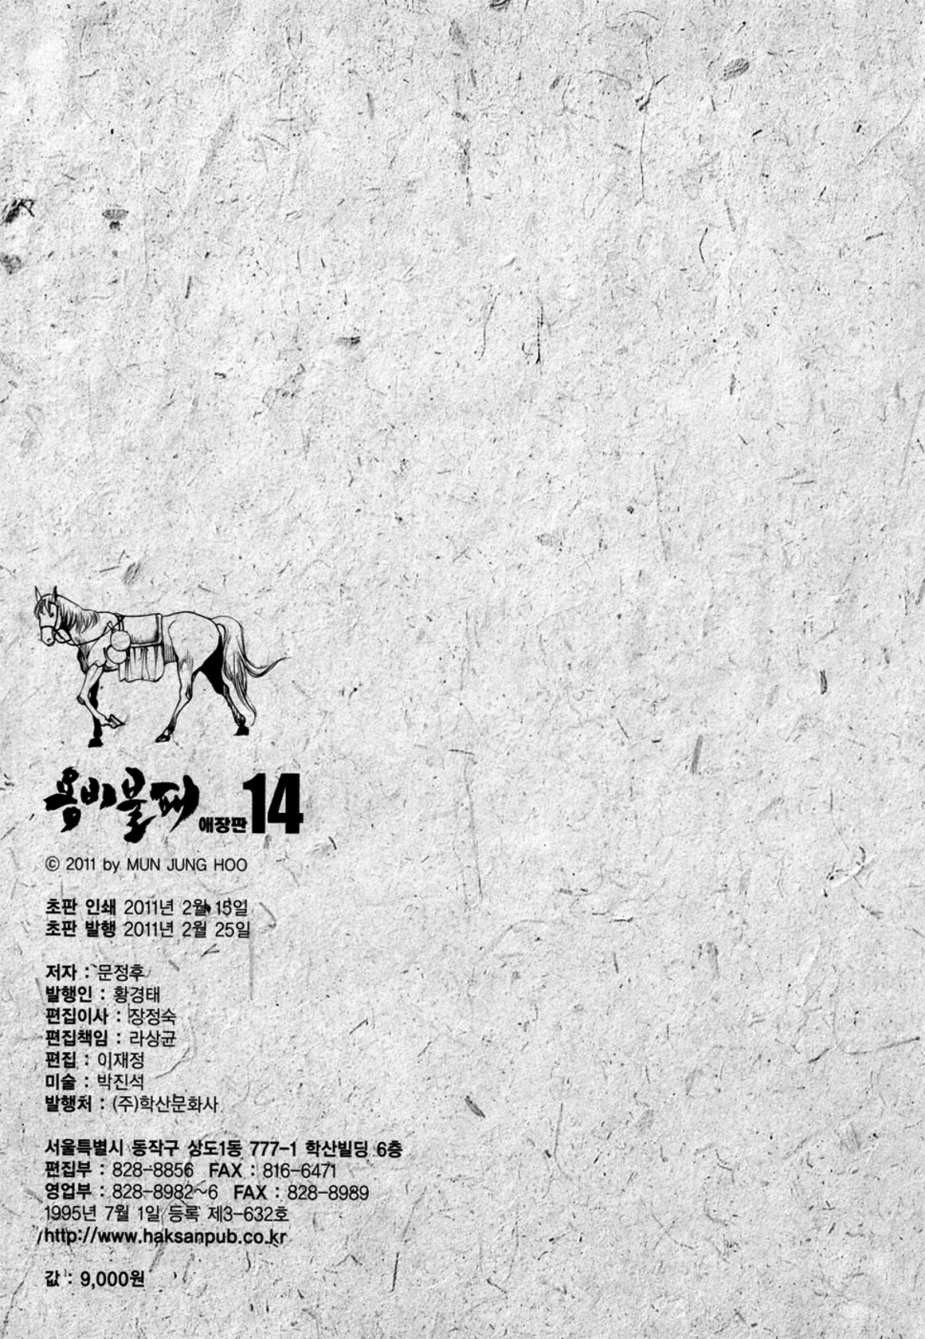 용비불패 애장판 14
© 2011 by MUN JUNG HOO
초판 인쇄 2011년 2월 15일
초판 발행 2011년 2월 25일
저자 : 문정후
발행인 : 황경태
편집이사 : 장정숙
편집책임 : 라상균
편집 : 이재정
미술 : 박진석
발행처 : (주)학산문화사
서울특별시 동작구 상도1동 777-1 학산빌딩 6층
편집부 : 828-8856 FAX : 816-6471
영업부 : 828-8982~6 FAX : 828-8989
1995년 7월 1일 등록 제3-632호
http://www.haksanpub.co.kr
값 : 9,000원